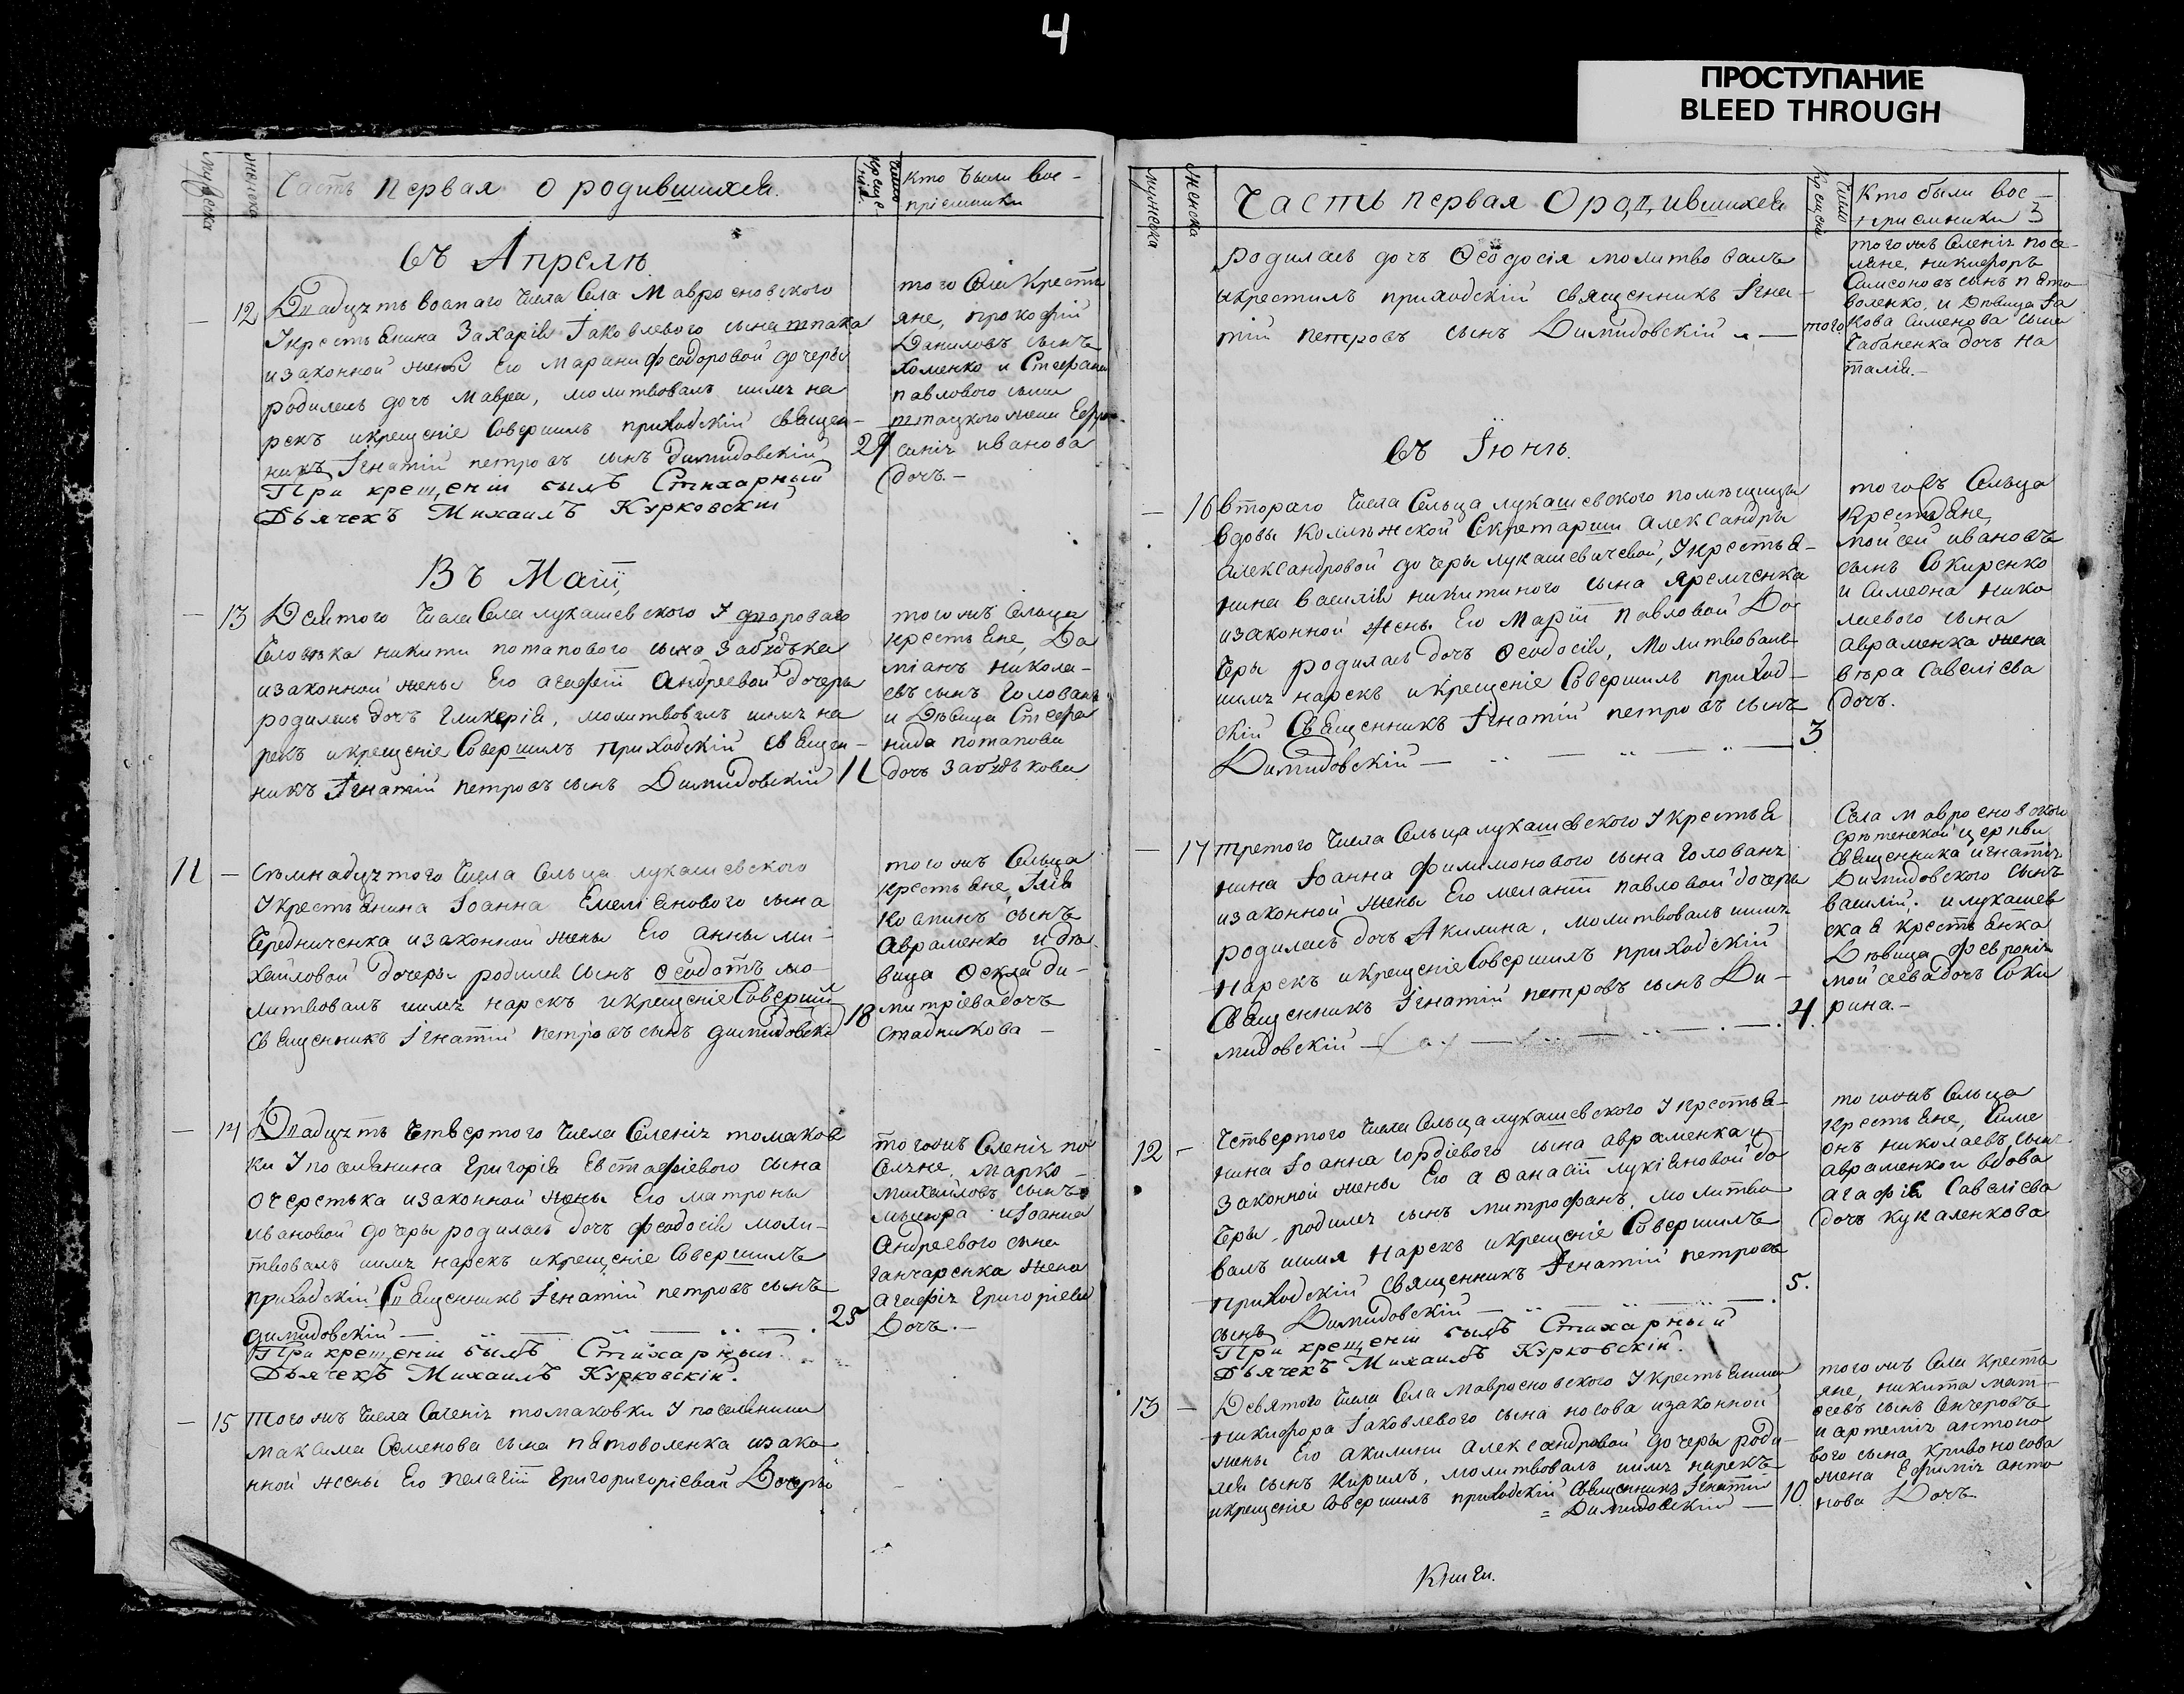 4
ПРОСТУПАНИЕ
BLEED THROUGH
мужеска
женска
Часть первая о родившихся.
число крещенія.
кто были вос-
пріемники
въ Апрелѣ
12
Двадцять восмаго числа села Мавроеновского
У крестьянина Захарія Іаковлевого сына
изаконной жены Его Марини феодоровой дочеры
родилась дочь Мавра, молитвовалъ имя на
рекъ икрещеніе Совершилъ приходскій священ-
никъ Ігнатій петровъ сынъ Димидовскій
При крещеніи былъ Стихарный
Дьячекъ Михаилъ Курковскій
29
того Села Крестья
яне, прокофій
Даниловъ сынъ
Хоменко и Стефана
павлового сына
жены Ефро
синія иванова
дочь.-
Въ Маіи,
13
Девятого числа Села лукашевского У дворового
Человѣка никити потапового сына Забѣдъка
изаконной жены Его агафіи Андреевой дочеры
родилась дочь Гликерія, молитвовалъ имя на
рекъ икрещеніе Совершилъ приходскій Священ-
никъ Ігнатій петровъ сынъ Димидовскій
11
того жъ Сельца
крестьяне, Да
міанъ никола-
евъ сынъ Голованъ
и Дѣвица Стефа
нида потапова
дочь Забѣдъкова
11 -
Сѣмнадцятого числа Сельца лукашевского
У крестьянина Іоанна Емеліянового сына
Чередниченка изаконной жены Его анны ми-
хайловой дочеры родился сынъ Ѳеодотъ мо-
литвовалъ имя нарекъ икрещеніе Совершилъ
Священникъ Ігнатій петровъ сынъ димидовскій
18
того жъ Сельца
крестьяне, Ілія
сынъ
Авраменко и дѣ
вица Ѳекла ди-
митріева дочь
стадникова -
14
Двадцять Четвертого числа Селенія томаков
ки У поселянина Григорія Евстафіевого сына
Очеретька изаконной жены Его матроны
ивановой дочеры родилась дочь феодосія моли-
твовалъ имя нарекъ икрещеніе Совершилъ
приходскій Священникъ Ігнатій петровъ сынъ
димидовскій
При крещеніи былъ Стихарный
Дьячекъ Михаилъ Курковскій.
25
того жъ Селенія по
селяне, Марко
михайловъ сынъ
и Іоанна
Андреевого сына
ганчаренка жена
агафія Григоріева
Дочь.-
15
Того жъ числа Селенія томаковки У поселянина
максима Семенова сына пятоволенка изако
нной жены Его пелагіи Григоригоріевой Дочеры
мужеска
женска
Часть первая О родившихся
число крещенія
Кто были вос-
пріемники 3
родилась дочь Ѳеодосія молитвовалъ
икрестилъ приходскій священникъ Ігна-
тій петровъ сынъ Димидовскій
того
того жъ Селенія посе-
ляне, никифоръ
Самсоновъ сынъ пято
воленко, и Дѣвица Іа
кова Сименова сына
Чабаненка дочь на
талія.-
Въ Іюнѣ.
16
Второго числа Сельца лукашевского помѣщицы
вдовы Коллѣжской Секретарши Александры
Александровой дочеры лукашевичевой, У крестья-
нина василія никитиного сына Яремченка
изаконной жены Его Маріи павловой До
Черы родилась дочь Ѳеодосія, молитвовалъ
имя нарекъ икрещеніе Совершилъ приход-
скій Священникъ Ігнатій петровъ сынъ
Димидовскій
3
того жъ Сельца
Крестьяне,
мойсей ивановъ
сынъ Сокиренко
и Симеона нико
лаевого сына
Авраменка жена
вѣра Савеліева
дочь.
17
третого числа Сельца лукашевского У крестья
нина Іоанна филимонового сына Голованя
изаконной жены Его меланіи павловой дочеры
родилась дочь Акилина, молитвовалъ имя
нарекъ икрещеніе Совершилъ приходскій
Священникъ Ігнатій петровъ сынъ Ди-
мидовскій
4.
Села мавроеновского
срѣтенской церкви
Священника игнатія
Димидовского сынъ
василій. и лукашев
ская крестьянка
Дѣвица февронія
мойсеева дочь Соки
рина.-
12 -
Четвертого числа Сельца лукашевского У крестья-
нина Іоанна гордіевого сына авраменка и-
законной жены Его аѳанасіи лукіяновой до
черы, родился сынъ митрофанъ, молитво
валъ имя нарекъ икрещеніе Совершилъ
приходскій священникъ Ігнатій петровъ
сынъ Димидовскій
При крещеніи былъ Стихарный
Дьячекъ Михаилъ Курковскій.
5.
того жъ Сельца
крестьяне, Симе
онъ николаевъ сынъ
авраменко и вдова
агафія Савеліева
дочь кукаленкова
13 -
Девятого числа Села мавроеновского У крестьянина
никифора Іаковлевого сына носова изаконной
жены Его акилини александровой дочеры роди
лся сынъ кирилъ, молитвовалъ имя нарекъ
икрещеніе Совершилъ приходскій Священникъ Ігнатій
= Димидовскій
10
того жъ Села кресть
яне, никита мат-
ѳеевъ сынъ
и артемія антоно
вого сына кривоносова
жена Ефимія анто
нова Дочь.